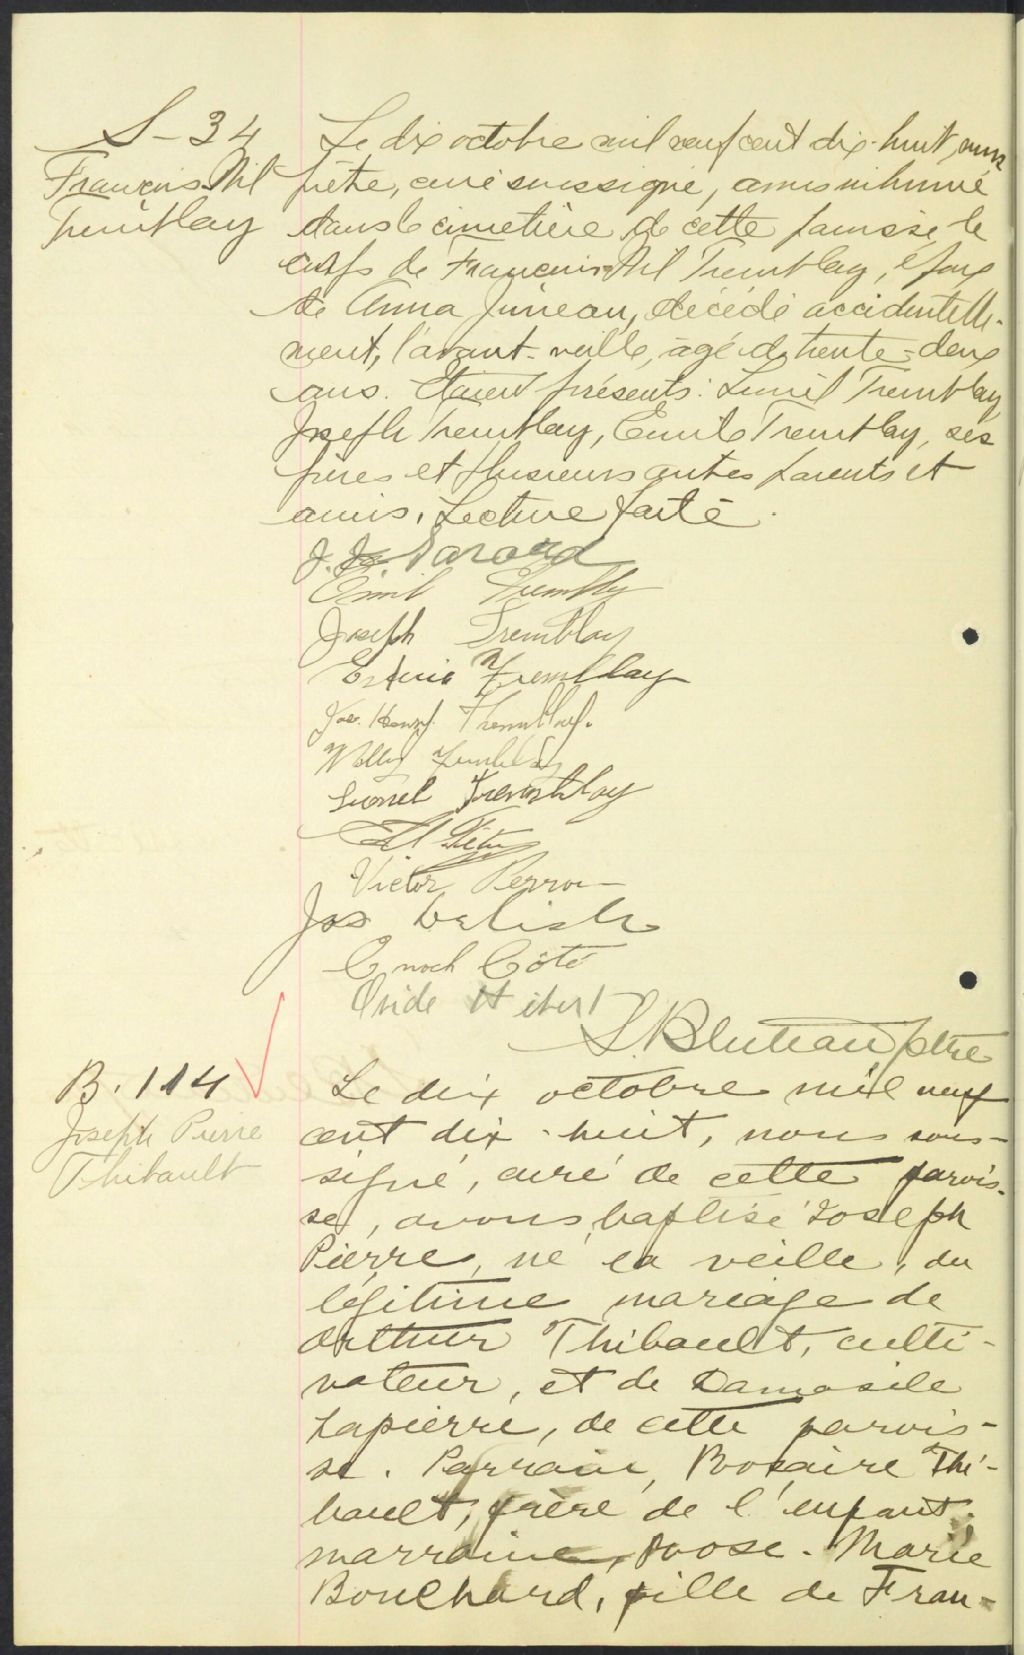 S - 34
François Nil
Tremblay
Le dix octobre mil neuf cent dix-huit, nous
prêtre, curé soussigné, avons inhumé
dans le cimetière de cette paroisse le
corps de François Nil Tremblay, époux
de Anna Juneau, décédé accidentelle-
ment, l'avant-veille, agé de trente-deux
ans. Étaient présents: Lionel Tremblay
Joseph Tremblay, Emile Tremblay, ses
frères et plusieurs autres parents et
amis. Lecture faite.
J. Savard
Emil Trembly
Joseph Tremblay
Tremblay
Jos. Henry. Thremblay.
Willy Trembley
Lionel Tremblay
Victor Perron
Jos Delisle
Enoch Côté
Ovide Hebert
S. Bluteau ptre
B. 114
Joseph Pierre
Thibault
Le dix octobre mil neuf
cent dix-huit, nous sous-
signé, curé de cette parois-
se, avons baptisé Joseph
Pierre, né la veille, du
légitime mariage de
Arthur Thibault, culti-
vateur, et de Damasile
Lapierre, de cette parois-
se. Parrain, Rosaire Thi-
bault, frère de l'enfant.
marraine, Rose-Marie
Bouchard, fille de Fran-